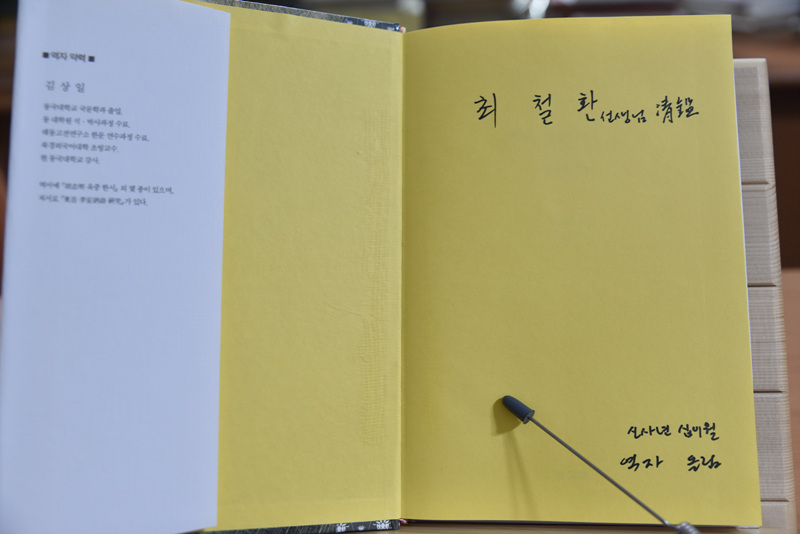 ■역자 약력■
김상일
동국대학교 국문학과 졸업.
동 대학원 석·박사과정 수료.
태동고전연구소 한문 연수과정 수료.
북경외국어대학 초빙교수.
현 동국대학교 강사.
역서에 육중 한시』 외 몇 종이 있으며,
저서로 『東岳 李安訥詩 研究』가 있다.
최 철 환 선생님 淸鑑
신사년 십이월
역자 올림